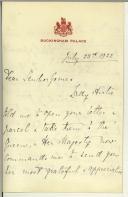 BUCKINGHAM PALACE
July 28th 1922
Dear Senhor Gomes
Lady Airlie
told me to open your letter &
parcel & take them to the
Queen, & Her Majesty now
commands me to send you
her most grateful & appreciative